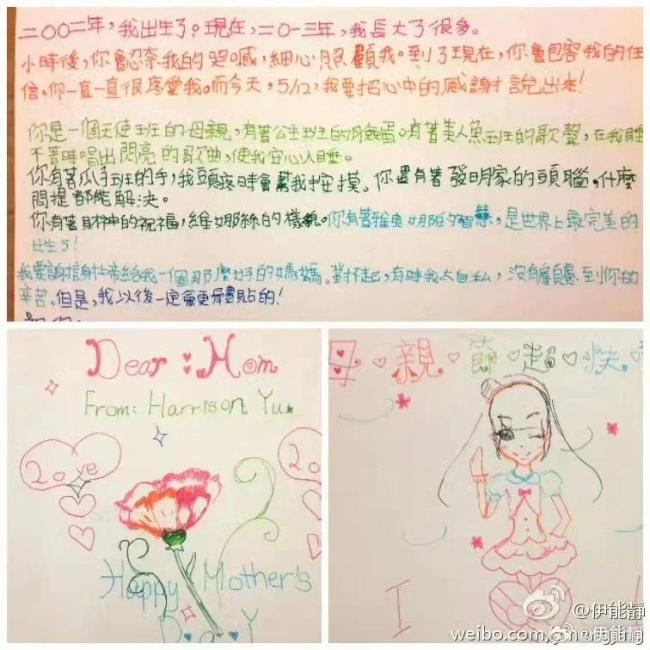 二〇〇二年，我出生了。現在，二〇一三年，我長大了很多。
小時後，你會忍奈我的哭喊，細心照顧我。到了現在，你會包容我的任
信。你一直一直很疼愛我。而今天，5/12，我要把心中的感謝說出來！
你是一個天使班的母親，有著公主班的臉蛋。有著美人魚班的歌聲，在我睡
不著時唱出閃亮的歌曲，使我安心入睡。
你有著瓜手班的手，我頭疼時會幫我按摸。你還有著發明家的頭腦。什麼
問提都能解決。
你有著財神的祝福，維娜絲的樣貌。你有著雅典娜的智慧，是世界上最完美的
出生了！
我要謝給我一個那麼好的媽媽。對不起，有時我太自私，沒有顧慮到你的
辛苦。但是，我以後一定會更體貼的！
Dear : Mom
From: Harrison Yu
Love
Love
Happy Mother's
Day
母親節超快
I
@伊能静
weibo.com/
@伊能静